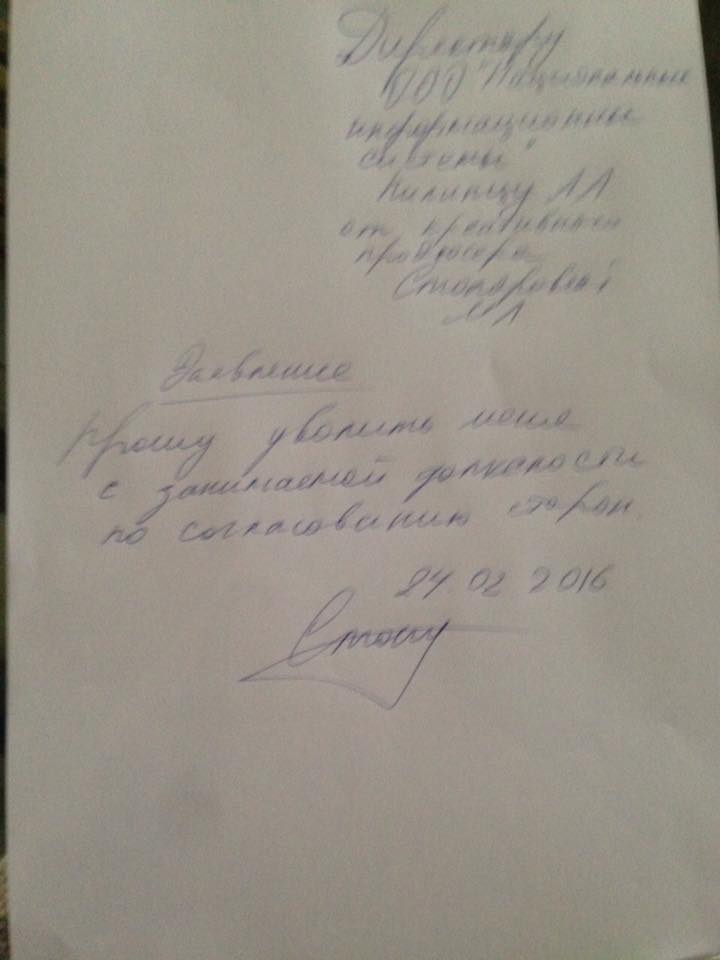 Директору
ООО "Национальные
информационные
системы"
Пилипцу А А
от креативного
продюсера
Столяровой
М Л
Заявление
Прошу уволить меня
с занимаемой должности
по согласованию сторон.
24.02 2016